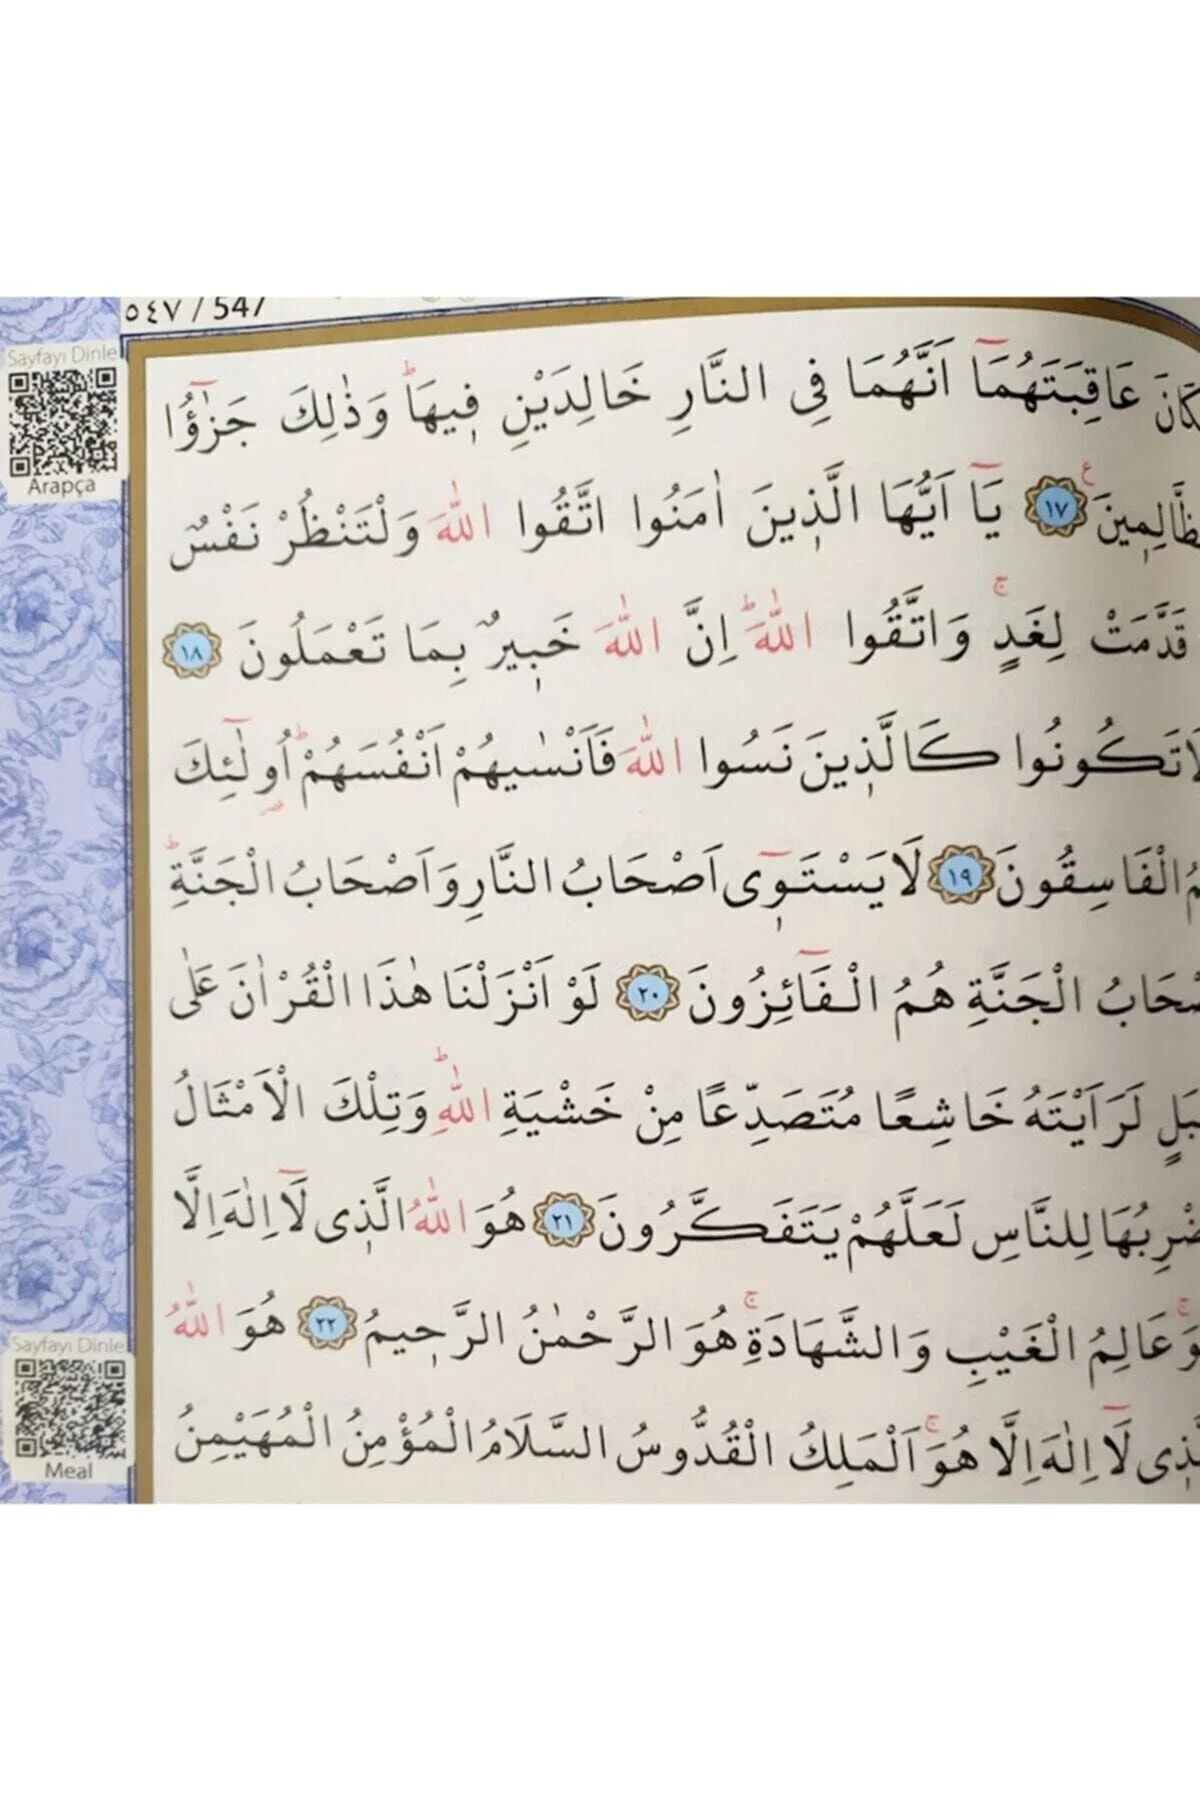 ٥٤٧ / 547
Sayfayı Dinle
Arapça
عَاقِبَتَهُمَٓا اَنَّهُمَا فِي النَّارِ خَالِدَيْنِ ف۪يهَاۜ وَذٰلِكَ جَزٰٓؤُا
﴿١٧﴾ يَٓا اَيُّهَا الَّذ۪ينَ اٰمَنُوا اتَّقُوا اللّٰهَ وَلْتَنْظُرْ نَفْسٌ
قَدَّمَتْ لِغَدٍۚ وَاتَّقُوا اللّٰهَۜ اِنَّ اللّٰهَ خَب۪يرٌ بِمَا تَعْمَلُونَ ﴿١٨﴾
تَكُونُوا كَالَّذ۪ينَ نَسُوا اللّٰهَ فَاَنْسٰيهُمْ اَنْفُسَهُمْۜ اُو۬لٰٓئِكَ
الْفَاسِقُونَ ﴿١٩﴾ لَا يَسْتَو۪ٓي اَصْحَابُ النَّارِ وَاَصْحَابُ الْجَنَّةِۜ
الْجَنَّةِ هُمُ الْفَٓائِزُونَ ﴿٢٠﴾ لَوْ اَنْزَلْنَا هٰذَا الْقُرْاٰنَ عَلٰى
لَرَاَيْتَهُ خَاشِعًا مُتَصَدِّعًا مِنْ خَشْيَةِ اللّٰهِۜ وَتِلْكَ الْاَمْثَالُ
لِلنَّاسِ لَعَلَّهُمْ يَتَفَكَّرُونَ ﴿٢١﴾ هُوَ اللّٰهُ الَّذ۪ي لَٓا اِلٰهَ اِلَّا
عَالِمُ الْغَيْبِ وَالشَّهَادَةِۚ هُوَ الرَّحْمٰنُ الرَّح۪يمُ ﴿٢٢﴾ هُوَ اللّٰهُ
لَٓا اِلٰهَ اِلَّا هُوَۚ اَلْمَلِكُ الْقُدُّوسُ السَّلَامُ الْمُؤْمِنُ الْمُهَيْمِنُ
Sayfayı Dinle
Meal